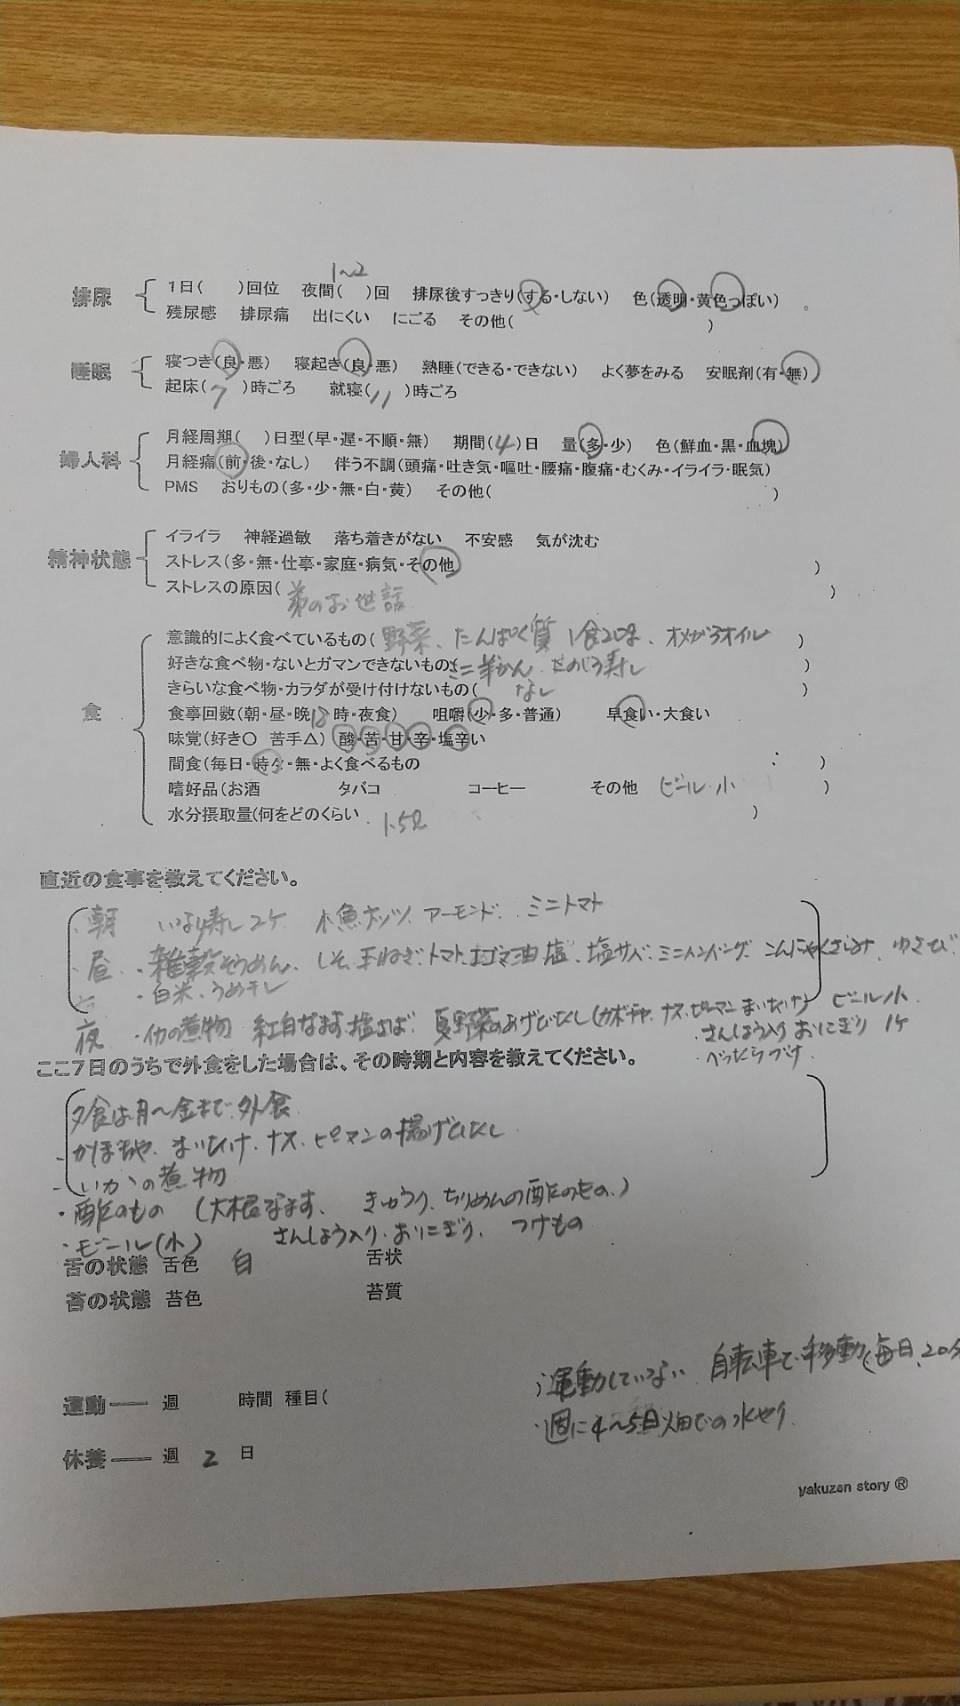 1~2
排尿 1日( )回位 夜間( )回 排尿後すっきり(する・しない) 色(透明・黄色っぽい)
残尿感 排尿痛 出にくい にごる その他( )
睡眠 寝つき(良・悪) 寝起き(良・悪) 熟睡(できる・できない) よく夢をみる 安眠剤(有・無)
起床(7)時ごろ 就寝(11)時ごろ
婦人科 月経周期( )日型(早・遅・不順・無) 期間(4)日 量(多・少) 色(鮮血・黒・血塊)
月経痛(前・後・なし) 伴う不調(頭痛・吐き気・嘔吐・腰痛・腹痛・むくみ・イライラ・眠気)
PMS おりもの(多・少・無・白・黄) その他( )
精神状態 イライラ 神経過敏 落ち着きがない 不安感 気が沈む
ストレス(多・無・仕事・家庭・病気・その他 )
ストレスの原因( 弟のお世話 )
食 意識的によく食べているもの( 野菜、たんぱく質 1食20g、オメガ3オイル )
好きな食べ物・ないとガマンできないもの 羊かん、 寿し )
きらいな食べ物・カラダが受け付けないもの( なし )
食事回数(朝・昼・晩18時・夜食) 咀嚼(少・多・普通) 早食い・大食い
味覚(好き〇 苦手△) 酸・苦・甘・辛・塩辛い
間食(毎日・時々・無・よく食べるもの : )
嗜好品(お酒 タバコ コーヒー その他 ビール・小 )
水分摂取量(何をどのくらい 1.5ℓ )
直近の食事を教えてください。
・朝 いなり寿し2ケ 小魚ナッツ アーモンド ミニトマト
・昼 ・雑穀そうめん、しそ、玉ねぎ、トマト、エゴマ油 塩、塩サバ、ミニハンバーグ、こんにゃくさしみ、わさび
・白米、うめ干し
夜 ・イカの煮物 紅白なます 塩さば 夏野菜のあげびたし(カボチャ、ナス、ピーマン まいたけ) ビール小
・さんしょう入り おにぎり 1ケ
・べったらづけ
ここ7日のうちで外食をした場合は、その時期と内容を教えてください。
夕食は月~金まで外食
・かぼちゃ、まいたけ、ナス、ピーマンの揚げびたし
・いかの煮物
・酢のもの (大根なます、 きゅうり、ちりめんの酢のもの、)
・ビール(小) さんしょう入り、おにぎり、 つけもの
舌の状態 舌色 白 舌状
苔の状態 苔色 苔質
・運動していない 自転車で移動(毎日、20分
運動―― 週 時間 種目(
・週に4~5日畑での水やり
休養―― 週 2 日
yakuzen story ®